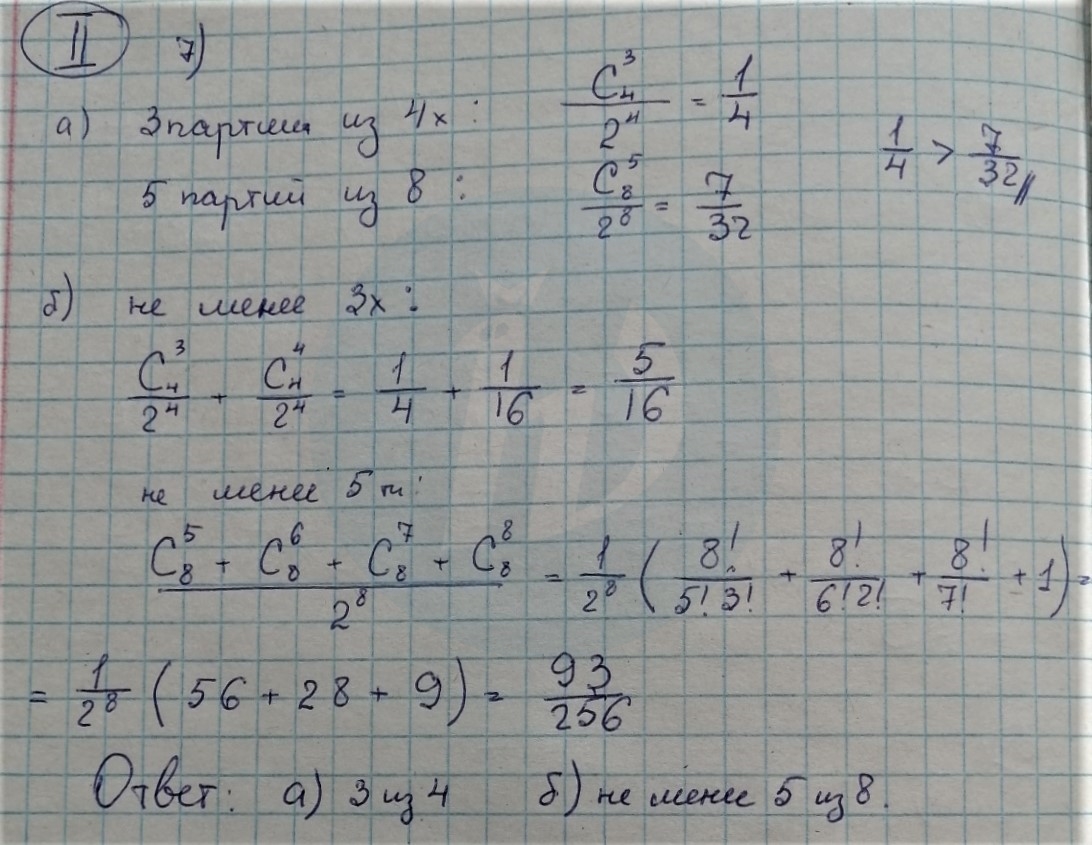 II 7)
а) 3 партии из 4х : C₄³/2⁴ = 1/4
1/4 > 7/32 //
5 партий из 8 : C₈⁵/2⁸ = 7/32
б) не менее 3х :
C₄³/2⁴ + C₄⁴/2⁴ = 1/4 + 1/16 = 5/16
не менее 5ти :
(C₈⁵ + C₈⁶ + C₈⁷ + C₈⁸)/2⁸ = 1/2⁸ (8!/5!3! + 8!/6!2! + 8!/7! + 1) =
= 1/2⁸ (56 + 28 + 9) = 93/256
Ответ: а) 3 из 4 б) не менее 5 из 8.